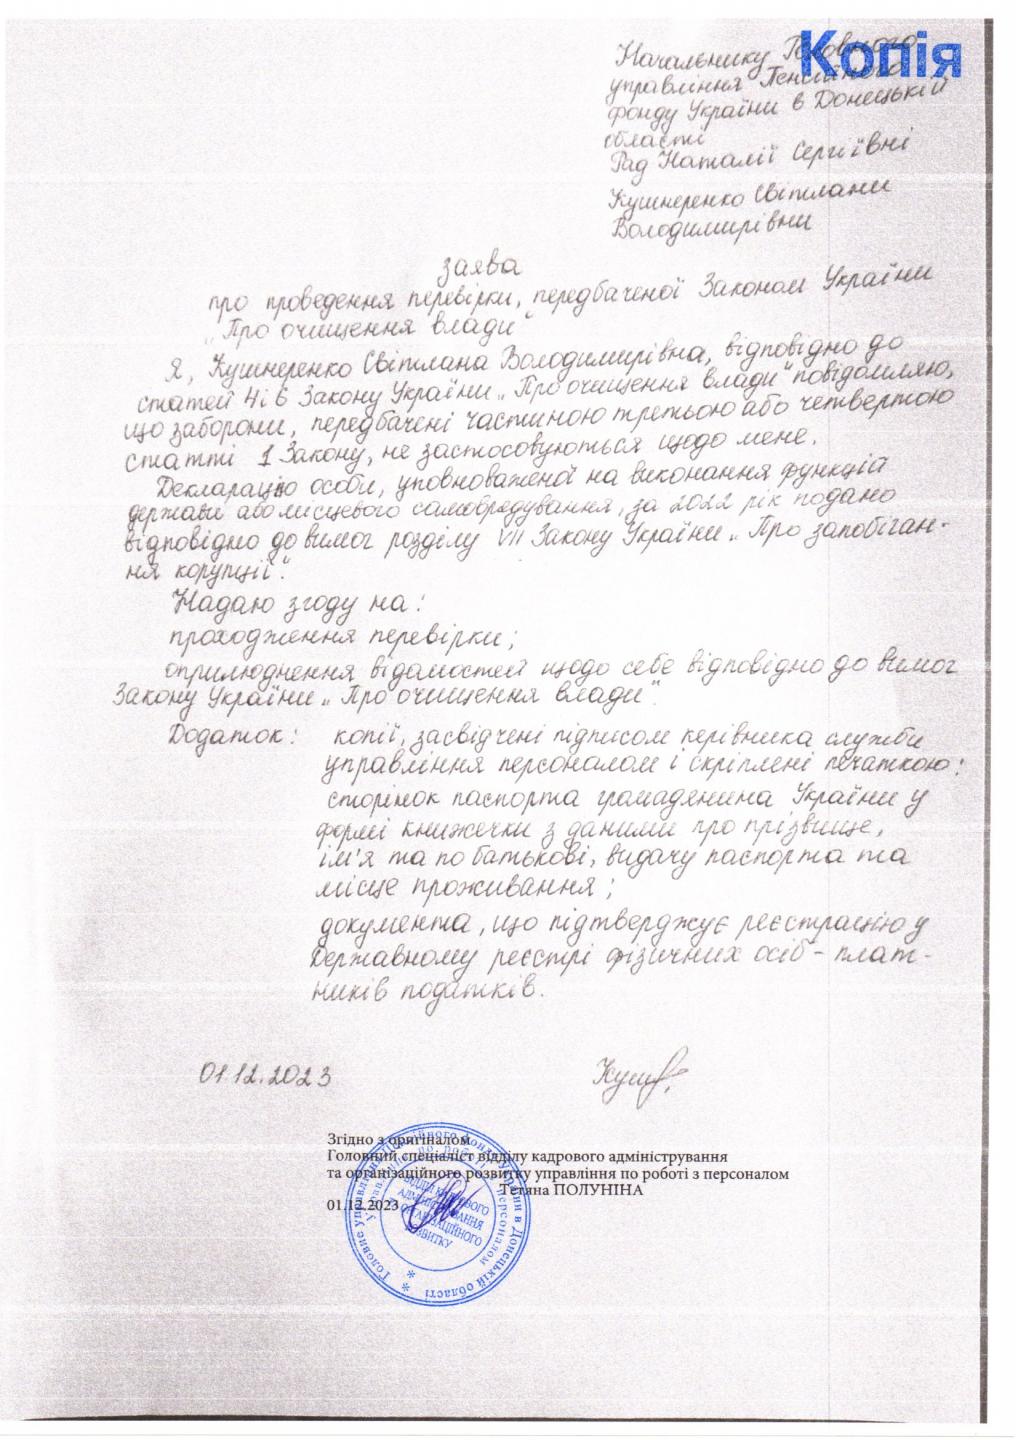 Копія
Начальнику Головного
управління Пенсійного
фонду України в Донецькій
області
Рад Наталії Сергіївні
Кушнеренко Світлани
Володимирівни
заява
про проведення перевірки, передбаченої Законом України
„Про очищення влади"
Я, Кушнеренко Світлана Володимирівна, відповідно до
статей 4 і 6 Закону України „Про очищення влади" повідомляю,
що заборони, передбачені частиною третьою або четвертою
статті 1 Закону, не застосовуються щодо мене.
Декларацію особи, уповноваженої на виконання функцій
держави або місцевого самоврядування, за 2022 рік подано
відповідно до вимог розділу VII Закону України „Про запобіган-
ня корупції".
Надаю згоду на:
проходження перевірки;
оприлюднення відомостей щодо себе відповідно до вимог
Закону України „Про очищення влади".
Додаток: копії, засвідчені підписом керівника служби
управління персоналом і скріплені печаткою:
сторінок паспорта громадянина України у
формі книжечки з даними про прізвище,
ім'я та по батькові, видачу паспорта та
місце проживання;
документа, що підтверджує реєстрацію у
Державному реєстрі фізичних осіб – плат-
ників податків.
01.12.2023
Згідно з оригіналом
Головний спеціаліст відділу кадрового адміністрування
та організаційного розвитку управління по роботі з персоналом
Тетяна ПОЛУНІНА
01.12.2023
Головне управління Пенсійного фонду України в Донецькій області
Управління по роботі з персоналом
ВІДДІЛ КАДРОВОГО
АДМІНІСТРУВАННЯ
ТА ОРГАНІЗАЦІЙНОГО
РОЗВИТКУ